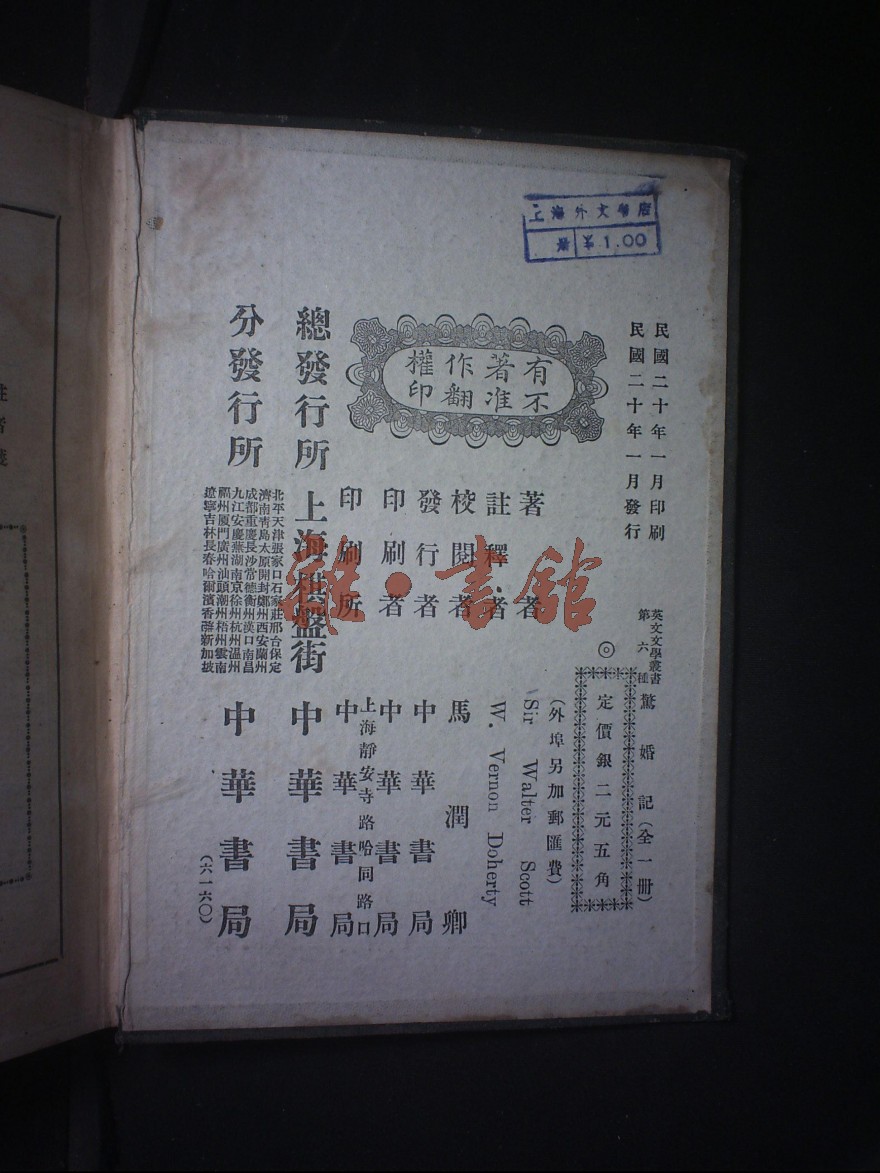 上海外文書店
册 ¥1.00
民國二十年一月印刷
民國二十年一月發行
英文文學叢書
第六種
驚婚記(全一冊)
◎
定價銀二元五角
(外埠另加郵匯費)
有著作權
不准翻印
著者 Sir Walter Scott
註釋者 W. Vernon Doherty
校閱者 馬潤卿
發行者 中華書局
印刷者 中華書局
上海靜安寺路哈同路口
印刷所 中華書局
總發行所 上海棋盤街 中華書局
分發行所
北平天津張家口石家莊邢台保定
濟南青島太原開封鄭州西安蘭州
成都重慶長沙常德衡州漢口南昌
九江安慶蕪湖南京徐州杭州溫州
福州厦門廣州汕頭潮州梧州雲南
遼寧吉林長春哈爾濱香港新加坡
中華書局
(六一六〇)
雜·書館